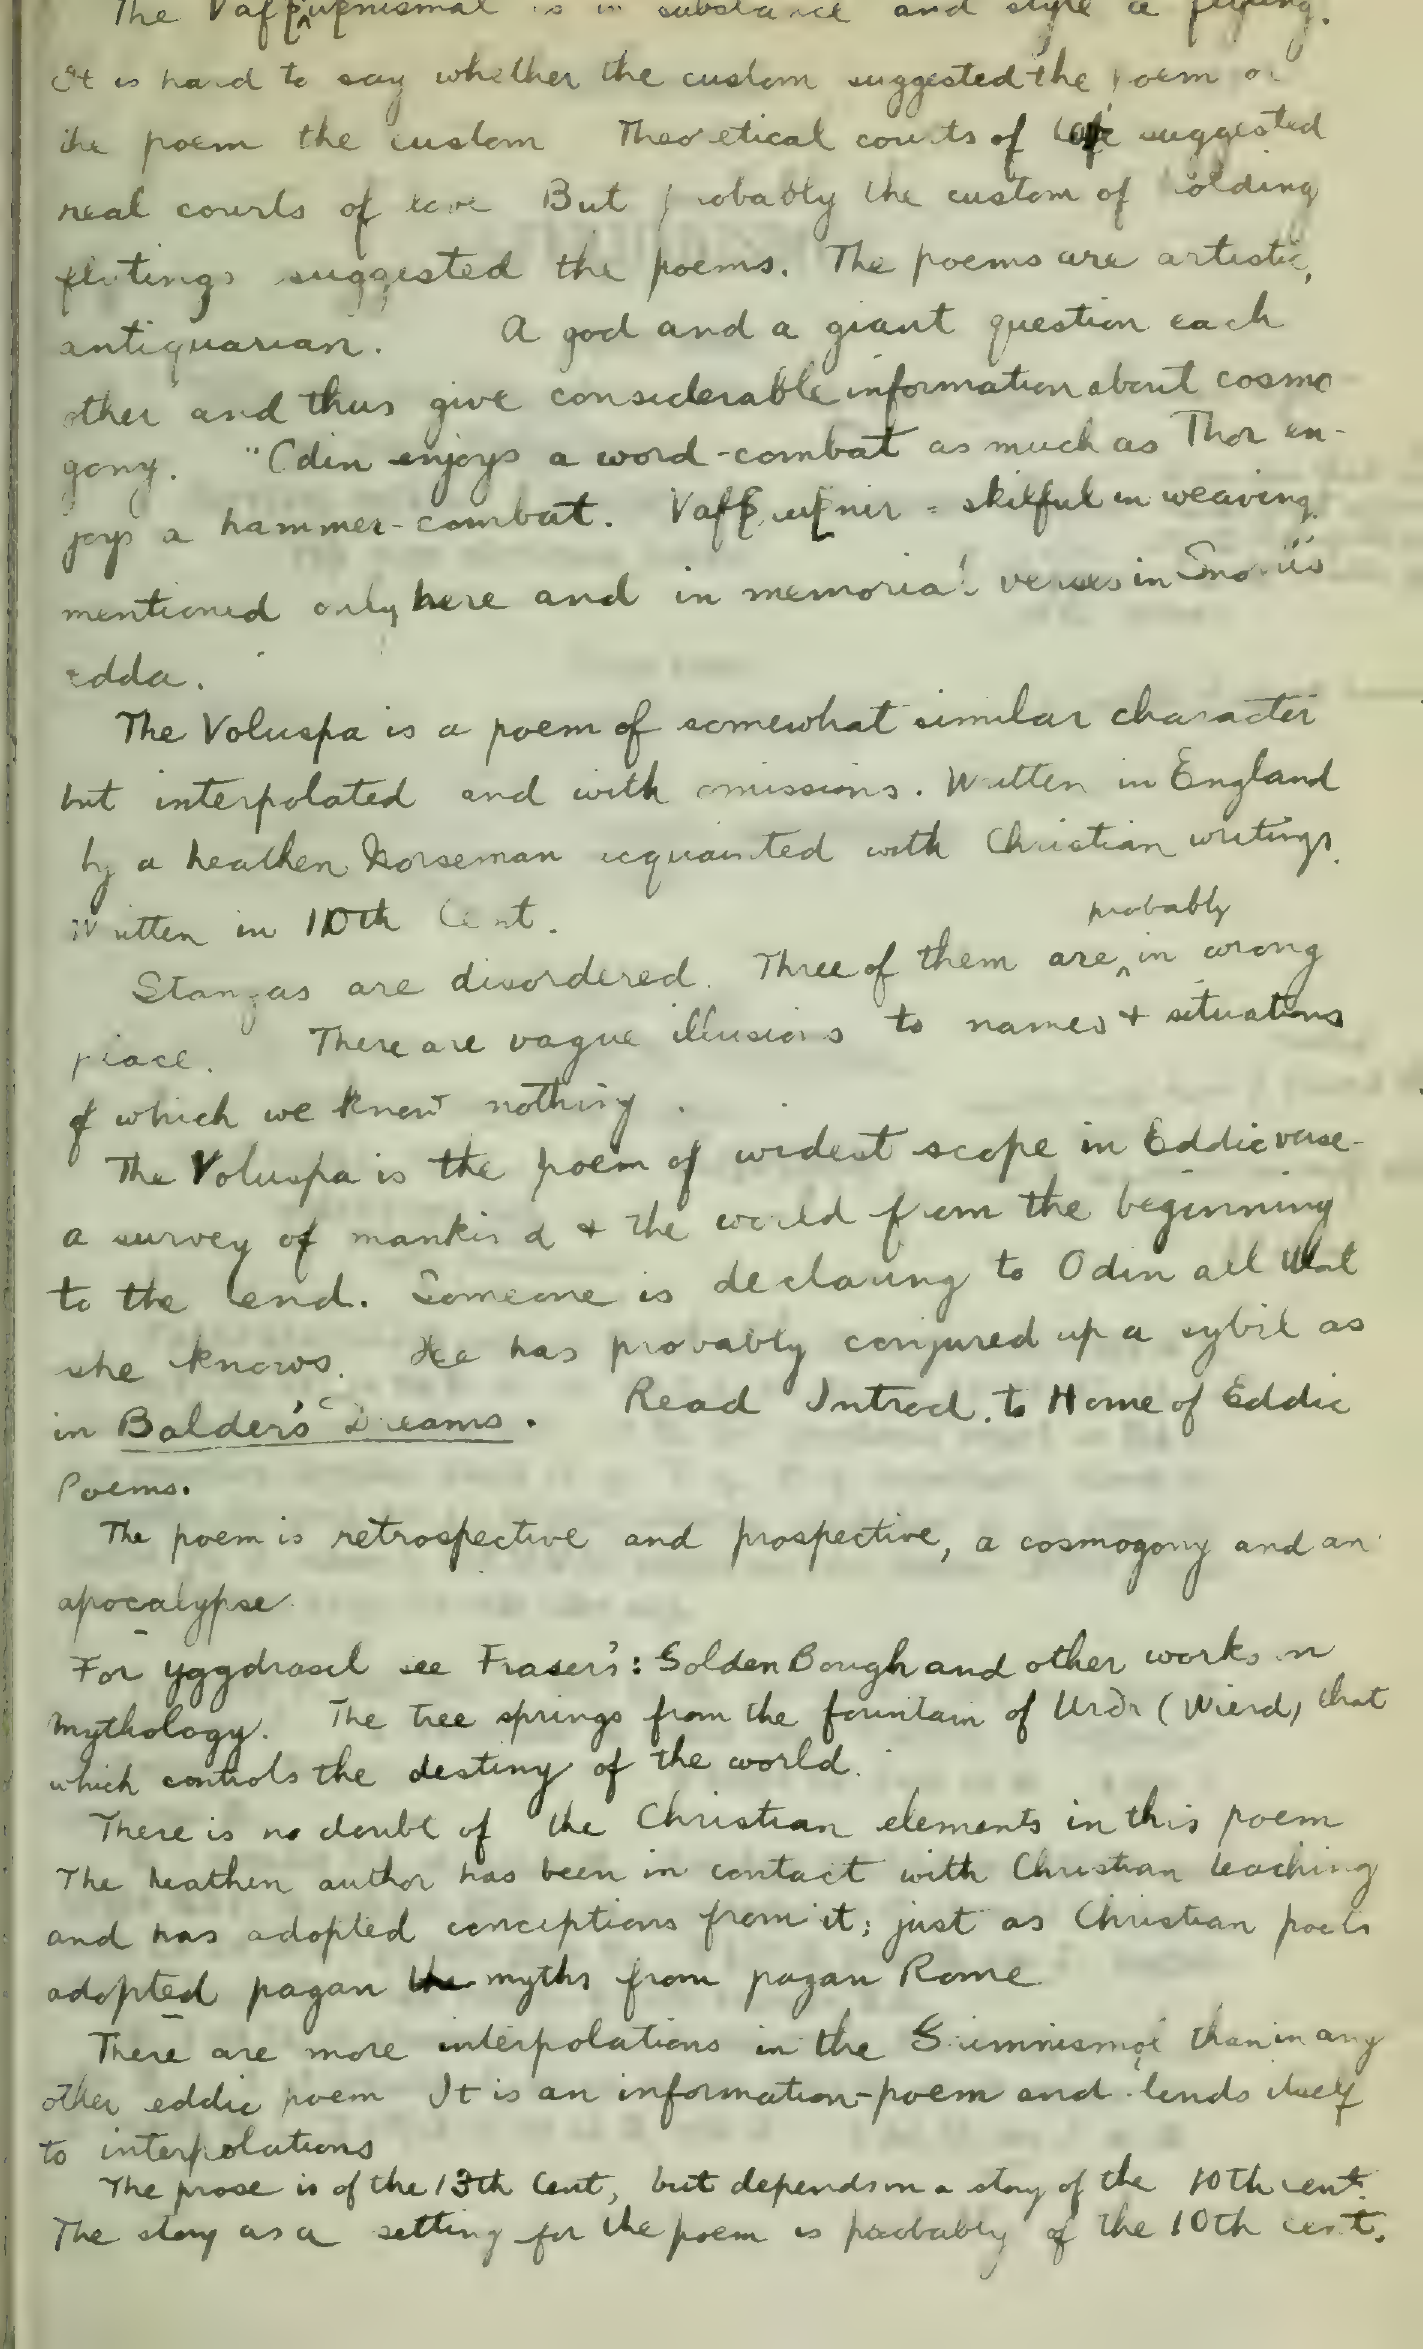 The Vafþruþnismal is in substance and style a flyting.
It is hard to say whether the custom suggested the poem or
the poem the custom Theoretical courts of love suggested
real courts of love But probably the custom of holding
flytings suggested the poems. The poems are artistic,
antiquarian. A god and a giant question each
other and thus give considerable information about cosmo
gony. "Odin enjoys a word-combat as much as Thor en-
joys a hammer-combat. Vafþruþnir = skilful in weaving.
mentioned only here and in memorial verses in Snorri's
edda.
The Voluspa is a poem of somewhat similar character
but interpolated and with omissions. Written in England
by a heathen Norseman acquainted with Christian writings.
Written in 10th Cent.
probably
Stanzas are disordered. Three of them are ^ in wrong
place. There are vague illusions to names + situations
of which we know nothing.
The Voluspa is the poem of widest scope in Eddic verse-
a survey of mankind + the world from the beginning
to the end. Someone is declaring to Odin all that
she knows. He has provably conjured up a sybil as
in Balder's Dreams. Read Introd. to Home of Eddic
Poems.
The poem is retrospective and prospective, a cosmogony and an
apocalypse
For Yggdrasil see Fraser's: Golden Bough and other works on
mythology. The tree springs from the fountain of Urðr (Wierd) that
which controls the destiny of the world.
There is no doubt of the Christian elements in this poem
The heathen author has been in contact with Christian teaching
and has adopted conceptions from it; just as Christian poets
adopted pagan the myths from pagan Rome
There are more interpolations in the than in any
other eddic poem It is an information-poem and lends itself
to interpolations
The prose is of the 13th Cent, but depends on a story of the 10th cent.
The story as a setting for the poem is probably of the 10th cent.